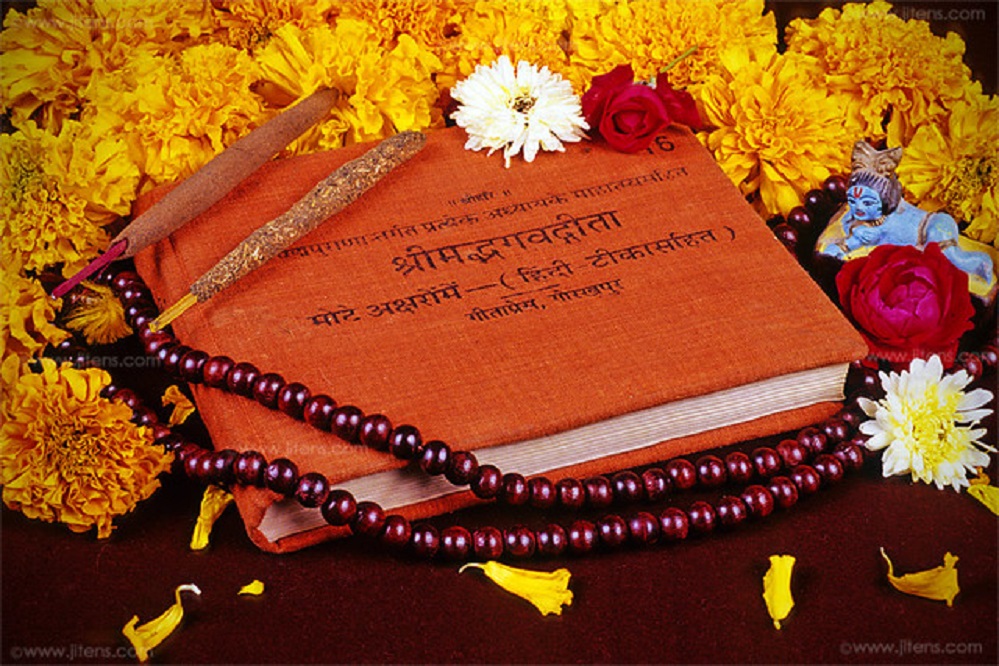 www.jitens.com
©www.jitens.com
16
॥ श्रीहरिः ॥
पद्मपुराणान्तर्गत प्रत्येक अध्यायके माहात्म्यसहित
श्रीमद्भगवद्गीता
मोटे अक्षरोंमें—(हिन्दी-टीकासहित)
गीताप्रेस, गोरखपुर
www.jitens.com
www.jitens.com
©www.jitens.com
©www.jitens.com